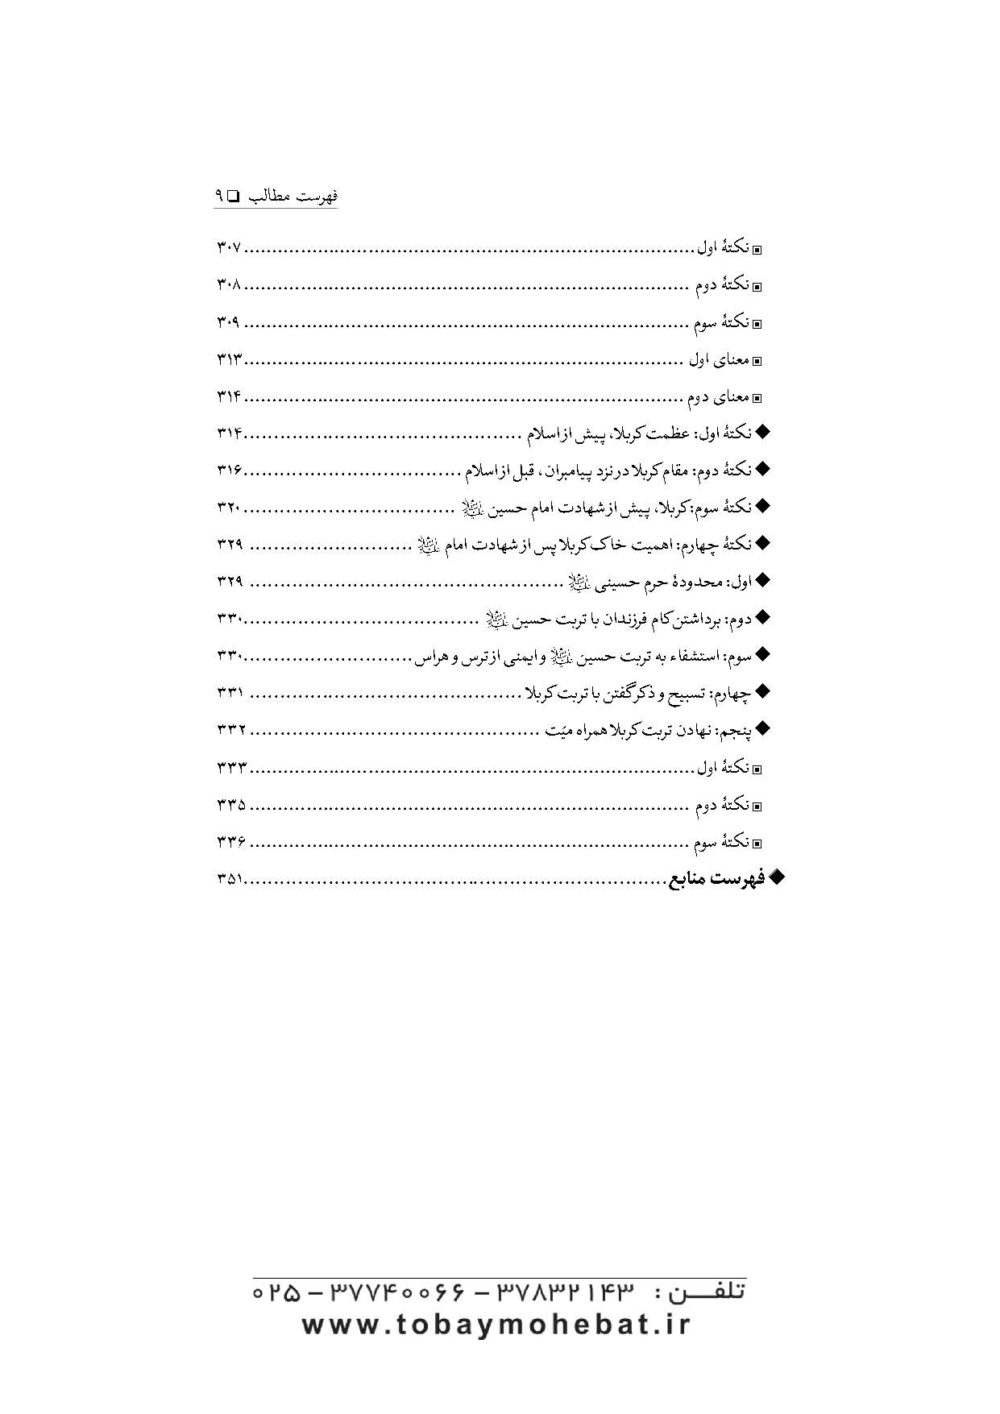 فهرست مطالب ❑ ۹
▣ نکتۀ اول ........ ۳۰۷
▣ نکتۀ دوم ........ ۳۰۸
▣ نکتۀ سوم ........ ۳۰۹
▣ معنای اول ........ ۳۱۳
▣ معنای دوم ........ ۳۱۴
◆ نکتۀ اول: عظمت کربلا، پیش از اسلام ........ ۳۱۴
◆ نکتۀ دوم: مقام کربلا در نزد پیامبران، قبل از اسلام ........ ۳۱۶
◆ نکتۀ سوم: کربلا، پیش از شهادت امام حسین علیه السلام ........ ۳۲۰
◆ نکتۀ چهارم: اهمیت خاک کربلا پس از شهادت امام علیه السلام ........ ۳۲۹
◆ اول: محدودۀ حرم حسینی علیه السلام ........ ۳۲۹
◆ دوم: برداشتن کام فرزندان با تربت حسین علیه السلام ........ ۳۳۰
◆ سوم: استشفاء به تربت حسین علیه السلام و ایمنی از ترس و هراس ........ ۳۳۰
◆ چهارم: تسبیح و ذکر گفتن با تربت کربلا ........ ۳۳۱
◆ پنجم: نهادن تربت کربلا همراه میّت ........ ۳۳۲
▣ نکتۀ اول ........ ۳۳۳
▣ نکتۀ دوم ........ ۳۳۵
▣ نکتۀ سوم ........ ۳۳۶
◆ فهرست منابع ........ ۳۵۱
تلفـــن : ۳۷۸۳۲۱۴۳ – ۳۷۷۴۰۰۶۶ – ۰۲۵
www.tobaymohebat.ir